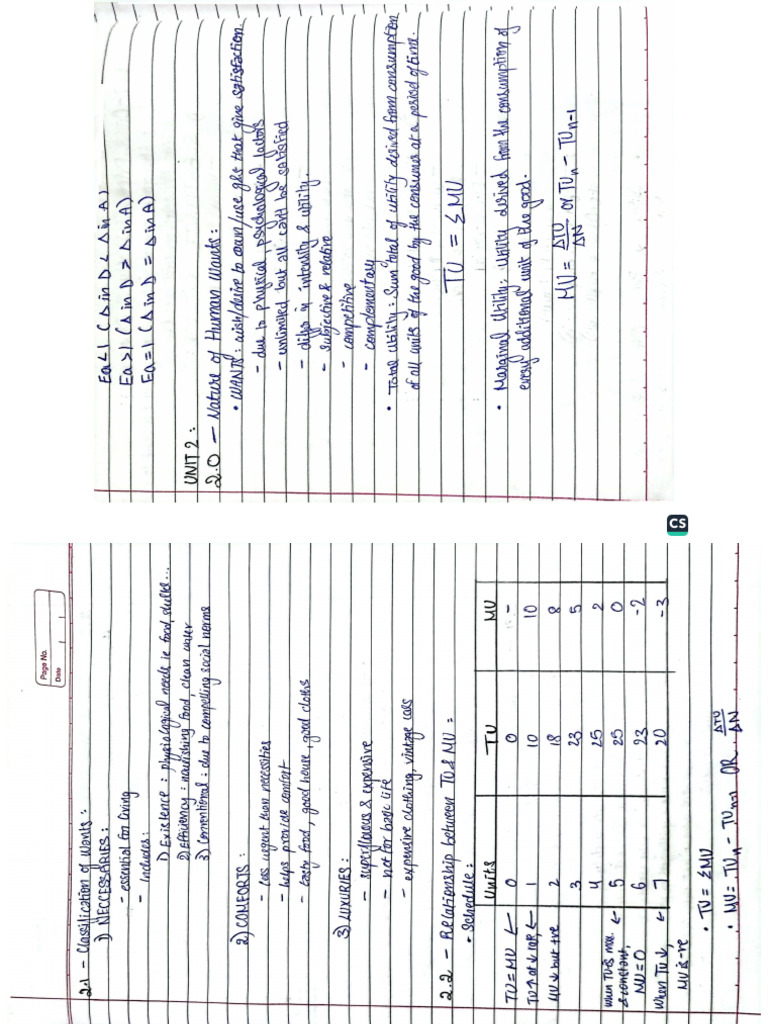 Ea<1 (Δ in D < Δ in A)
Ea>1 (Δ in D > Δ in A)
Ea=1 (Δ in D = Δ in A)
UNIT 2 :
2.0 – Nature of Human Wants :
• WANTS : wish/desire to own/use g&s that give satisfaction.
- due to physical psychological factors
- unlimited but all can't be satisfied
- differ in intensity & utility.
- subjective & relative
- competitive
- complementary
• Total Utility : Sum total of utility derived from consumption
of all units of the good by the consumer at a period of time.
TU = ΣMU
• Marginal Utility : utility derived from the consumption of
every additional unit of the good.
MU = ΔTU/ΔN or TUn - TUn-1
CS
Page No.
Date
2.1 – Classification of Wants :
1) NECCESSARIES :
- essential for living
- includes :
1) Existence : physiological needs ie food, shelter...
2) Efficiency : nourishing food, clean water
3) Conventional : due to compelling social norms
2) COMFORTS :
- less urgent than necessities
- helps provide comfort
- tasty food, good house, good cloths
3) LUXURIES :
- superfluous & expensive
- not for basic life
- expensive clothing, vintage cars
2.2 – Relationship between TU & MU :
• Schedule :
Units TU MU
TU=MU ← 0 0 -
TU↑ at ↓ ← 1 10 10
MU ↓ but +ve 2 18 8
3 23 5
4 25 2
when TU is max. ← 5 25 0
& constant,
MU=0 6 23 -2
When TU↓, ← 7 20 -3
MU is -ve
• TU = ΣMU
• MU = TUn - TUn-1 OR ΔTU/ΔN